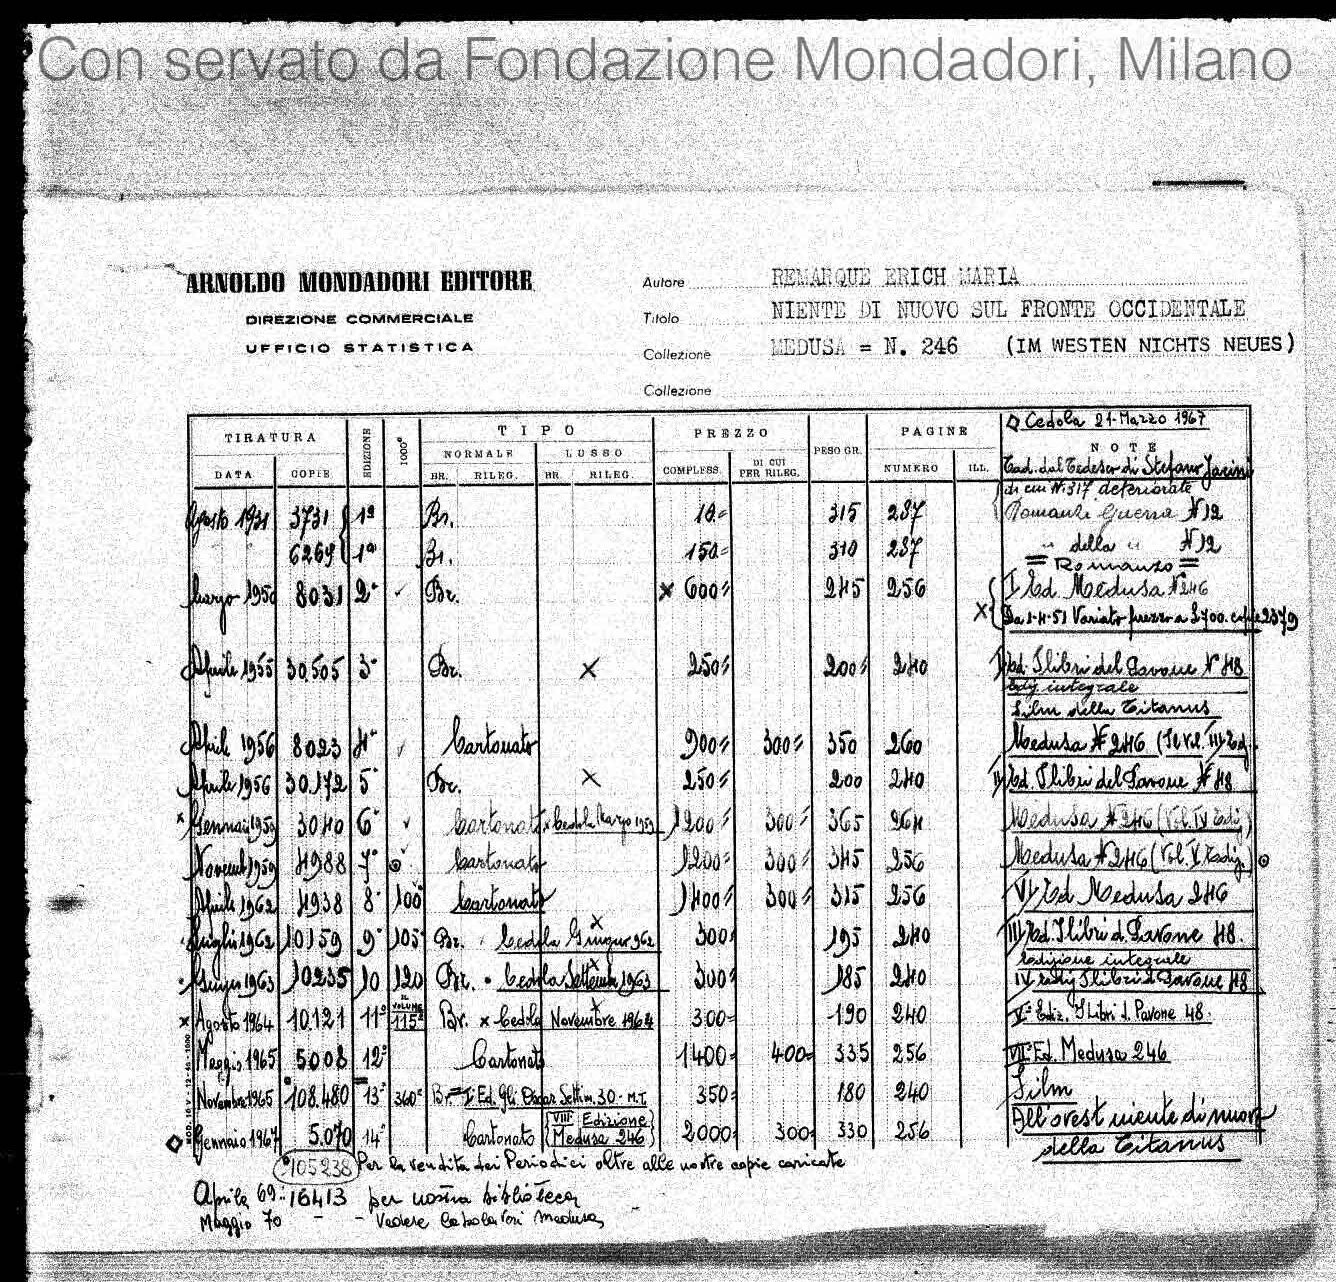 Con servato da Fondazione Mondadori, Milano
ARNOLDO MONDADORI EDITORE
DIREZIONE COMMERCIALE
UFFICIO STATISTICA
Autore REMARQUE ERICH MARIA
Titolo NIENTE DI NUOVO SUL FRONTE OCCIDENTALE
Collezione MEDUSA = N. 246 (IM WESTEN NICHTS NEUES)
Collezione
Cedola 21-Marzo 1967
TIRATURA EDIZIONE 1000° TIPO PREZZO PESO GR. PAGINE NOTE
NORMALE LUSSO
DATA COPIE BR. RILEG. BR. RILEG. COMPLESS. DI CUI PER RILEG. NUMERO ILL.
Trad. dal Tedesco di Stefano Jacini
di cui N. 317 deteriorate
Agosto 1931 3731 1ª Br. 10= 315 287 Romanzi Guerra N 12
6269 1ª Br. 150= 310 287 " della " N 12
= Romanzo =
Marzo 1950 8031 2° Br. x 600= 245 256 I Ed. Medusa N 246
x Da 1-4-51 Variato prezzo a £700. copie 2379
Aprile 1955 30.505 3° Br. x 250= 200 240 I Ed. I libri del Pavone N° 48
Ediz integrale
Film della Titanus
Aprile 1956 8023 4° Cartonato 900= 300= 350 260 Medusa N° 246
Aprile 1956 30.172 5° Br. x 250= 200 240 II Ed. I libri del Pavone N° 48
x Gennaio 1959 3040 6° Cartonato x Cedola Marzo 1959 1200= 300= 365 264 Medusa N° 246 (Vol. IV Ediz.)
Novemb 1959 4988 7° Cartonato 1200= 300= 345 256 Medusa N° 246 (Vol. V Ediz.)
Aprile 1962 4938 8° 100° Cartonato 1400= 300= 315 256 VI Ed Medusa 246
Luglio 1962 10159 9° 105° Br. Cedola Giugno 962 300= 195 240 III Ed. I libri d. Pavone 48.
Edizione integrale
Giugno 1963 10235 10 120 Br. Cedola Settembre 1963 300= 185 240 IV ediz I libri d. Pavone 48
IL VOLUME
x Agosto 1964 10.121 11° 115° Br. x Cedola Novembre 1964 300= 190 240 V° Ediz. I libri d. Pavone 48.
Maggio 1965 5.008 12° Cartonato 1400= 400= 335 256 VII° Ed. Medusa 246
Novembre 1965 108.480 13° 360° Br. = I° Ed. Gli Oscar Settim. 30 - M.T. 350= 180 240 Film
VIII° Edizione All'ovest niente di nuovo
Gennaio 1967 5.070 14° Cartonato Medusa 246 2000= 300= 330 256 della Titanus
MOD. 10 V - 12-65 - 1000
105238 Per la vendita dei Periodici oltre alle nostre copie caricate
Aprile 69 = 16413 per nostra biblioteca
Maggio 70 - - Vedere Medusa